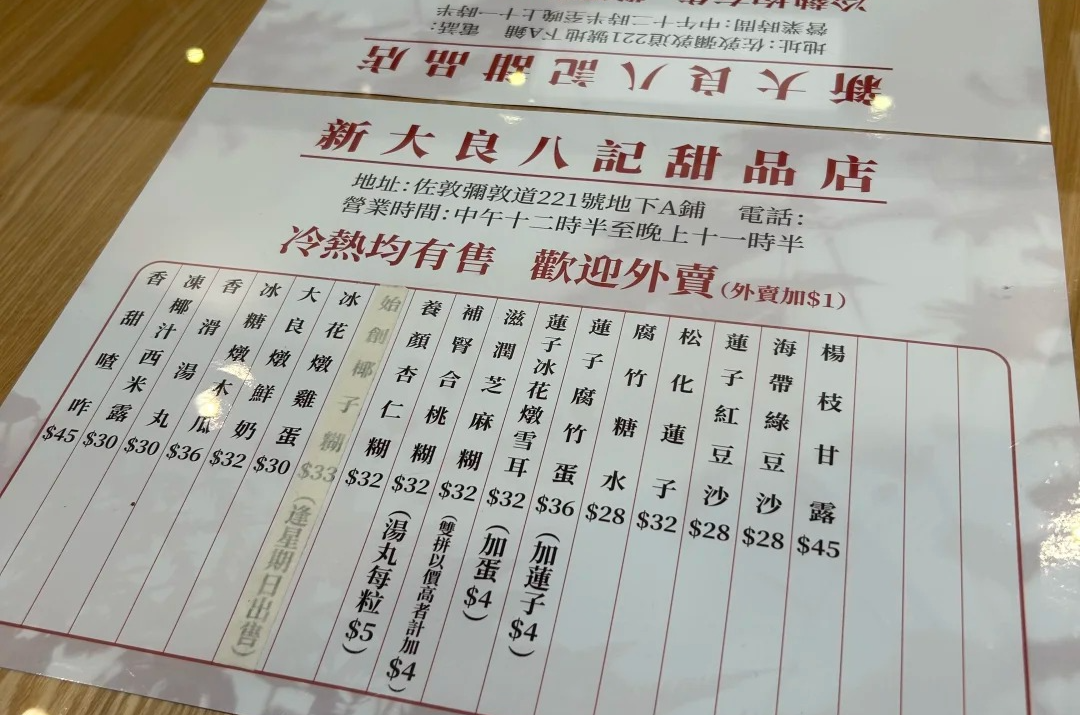 新大良八記甜品店
地址:佐敦彌敦道221號地下A鋪 電話:
營業時間:中午十二時半至晚上十一時半
新大良八記甜品店
地址:佐敦彌敦道221號地下A鋪 電話:
營業時間:中午十二時半至晚上十一時半
冷熱均有售 歡迎外賣(外賣加$1)
楊枝甘露 $45
海帶綠豆沙 $28
蓮子紅豆沙 $28
松化蓮子 $32
腐竹糖水 $28
蓮子腐竹蛋 $36
蓮子冰花燉雪耳 $32 (加蓮子$4)
滋潤芝麻糊 $32 (加蛋$4)
補腎合桃糊 $32 (雙拼以價高者計加$4)
養顏杏仁糊 $32 (湯丸每粒$5)
始創椰子糊 $33 (逢星期日出售)
冰花燉雞蛋 $30
大良燉鮮奶 $32
冰糖燉木瓜 $36
香滑湯丸 $30
凍椰汁西米露 $30
香甜喳咋 $45